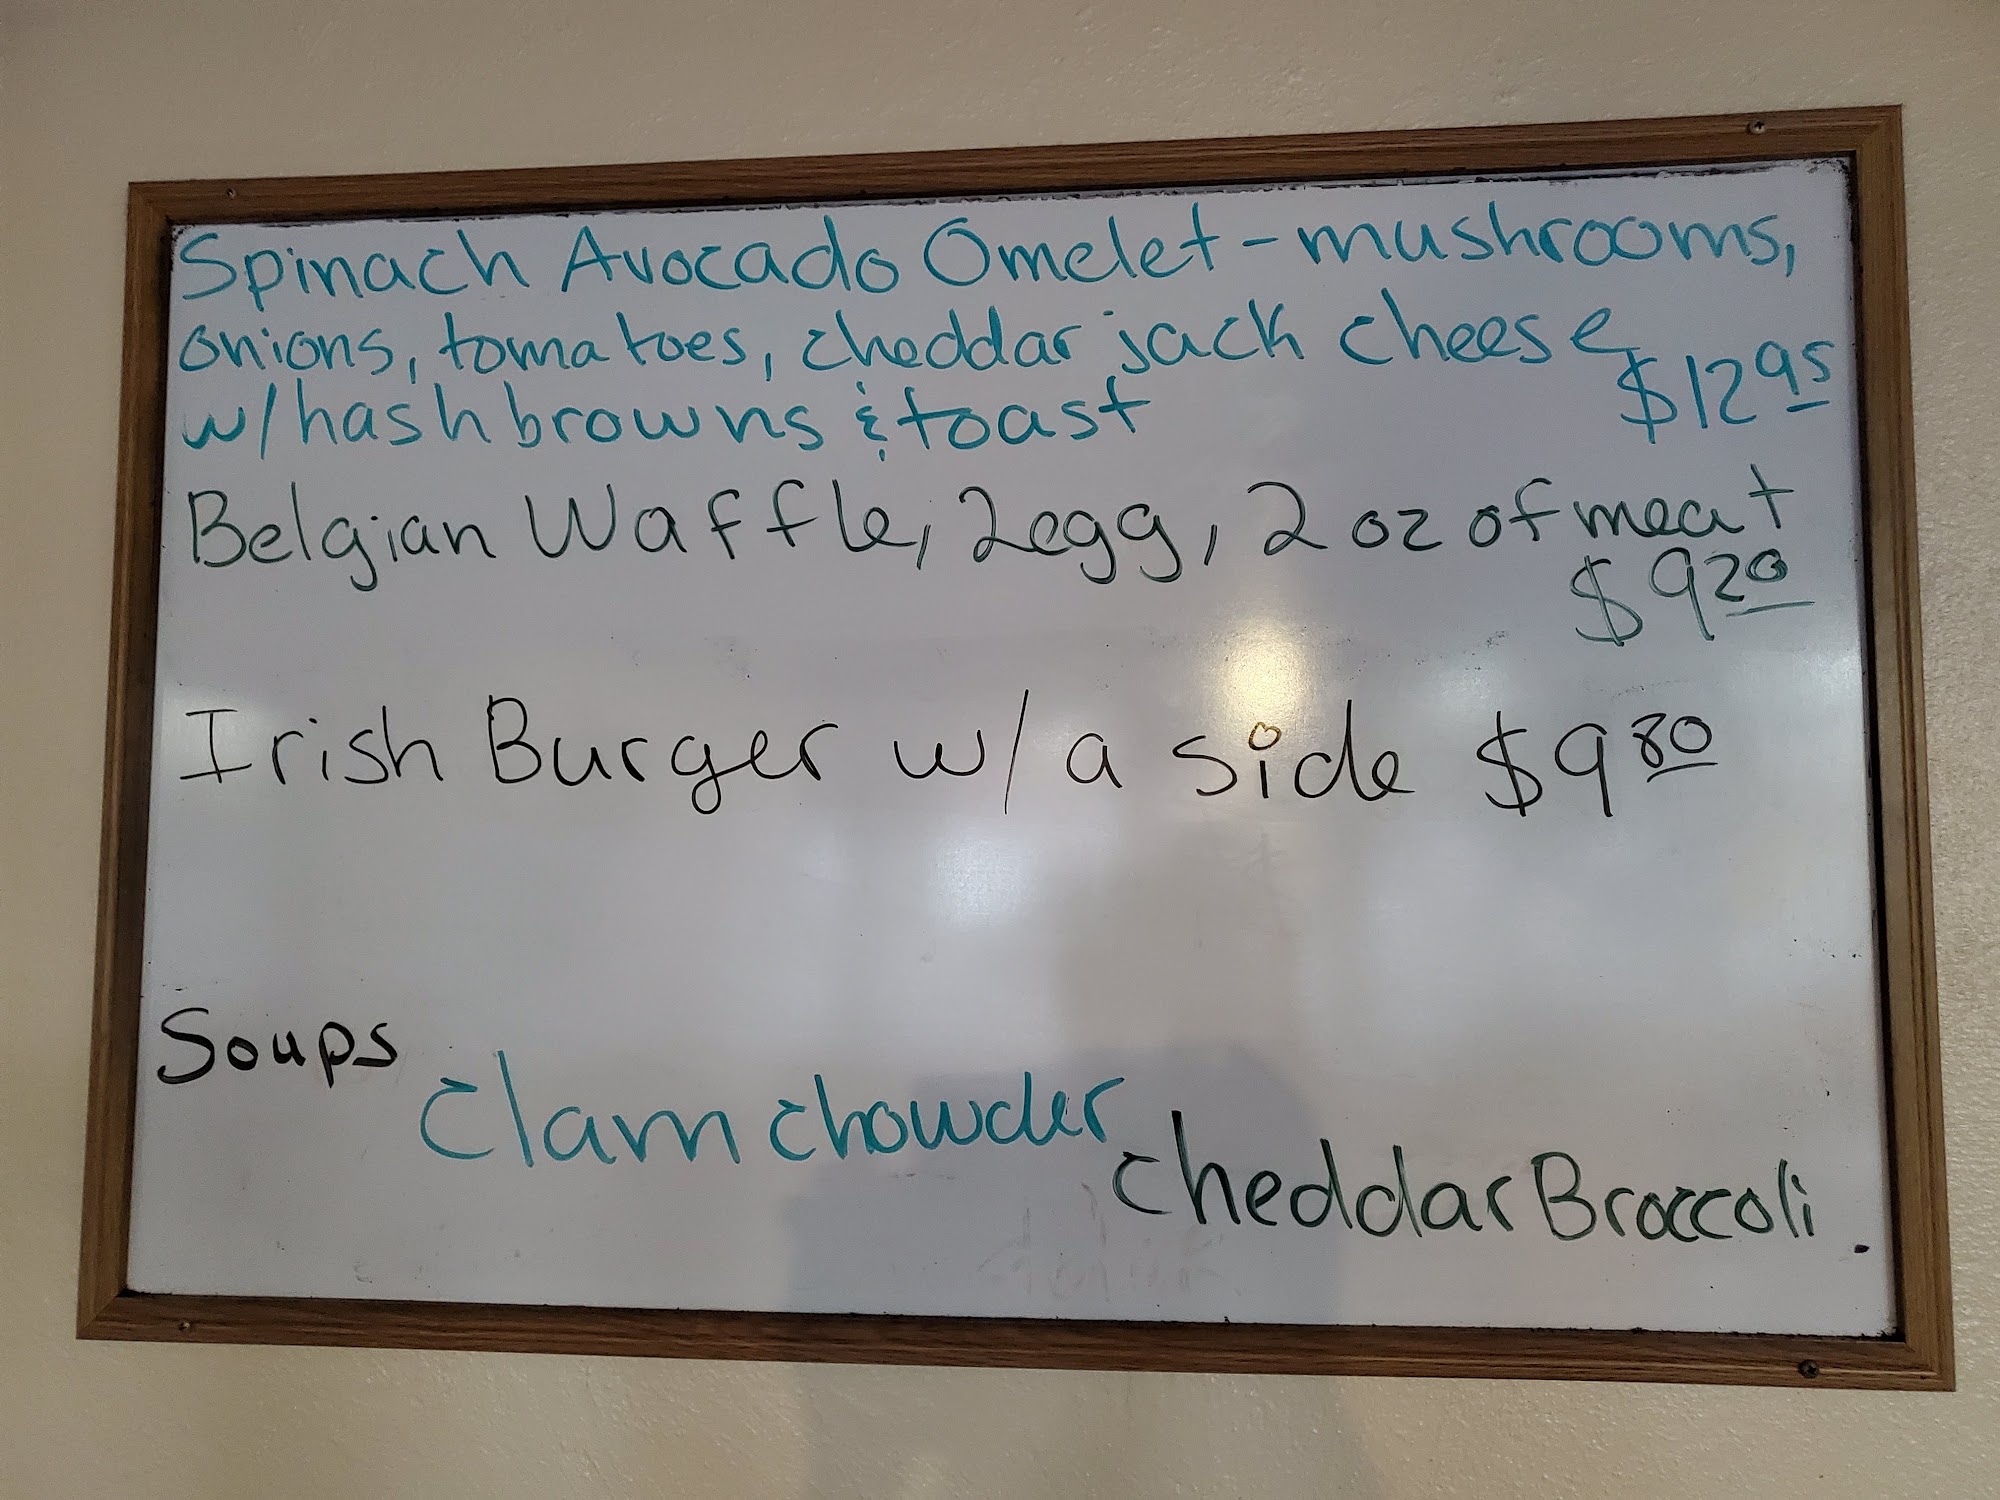 Spinach Avocado Omelet - mushrooms,
onions, tomatoes, cheddar jack cheese
w/hashbrowns & toast $12.95
Belgian Waffle, 2egg, 2 oz of meat
$9.20
Irish Burger w/ a side $9.80
Soups
Clam chowder
Cheddar Broccoli